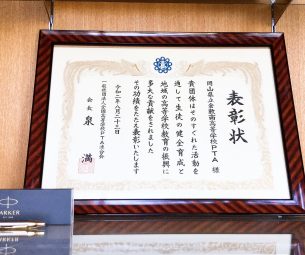 表彰状
岡山県立倉敷南高等学校PTA 様
貴団体はそのすぐれた活動を
通して生徒の健全育成と
地域の高等学校教育の振興に
多大な貢献をされました
その功績をたたえ表彰いたします
令和二年八月二十三日
一般社団法人全国高等学校PTA連合会
会長 泉 満
PARKER